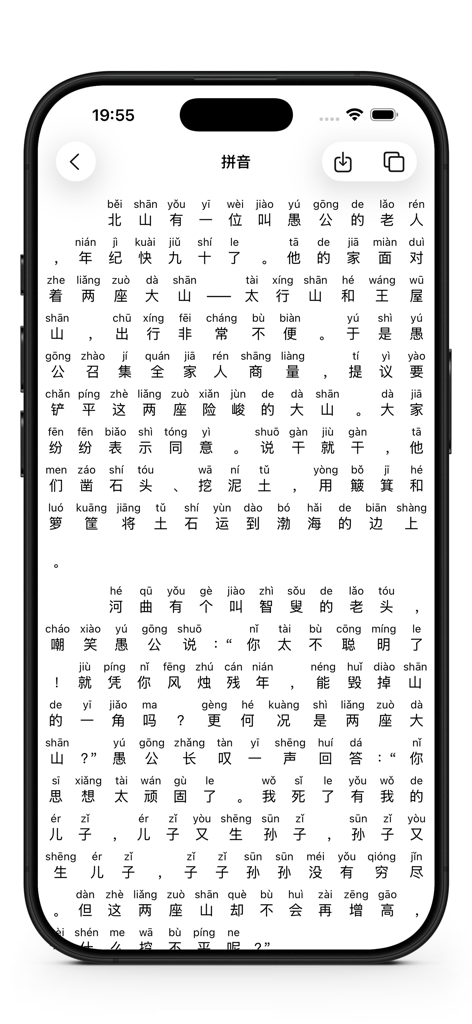 19:55
拼音
běi shān yǒu yī wèi jiào yú gōng de lǎo rén
北山有一位叫愚公的老人
nián jì kuài jiǔ shí le tā de jiā miàn duì
，年纪快九十了。他的家面对
zhe liǎng zuò dà shān tài xíng shān hé wáng wū
着两座大山——太行山和王屋
shān chū xíng fēi cháng bù biàn yú shì yú
山，出行非常不便。于是愚
gōng zhào jí quán jiā rén shāng liàng tí yì yào
公召集全家人商量，提议要
chǎn píng zhè liǎng zuò xiǎn jùn de dà shān dà jiā
铲平这两座险峻的大山。大家
fēn fēn biǎo shì tóng yì shuō gàn jiù gàn tā
纷纷表示同意。说干就干，他
men záo shí tóu wā ní tǔ yòng bǒ jī hé
们凿石头、挖泥土，用簸箕和
luó kuāng jiāng tǔ shí yùn dào bó hǎi de biān shàng
箩筐将土石运到渤海的边上
。
hé qū yǒu gè jiào zhì sǒu de lǎo tóu
河曲有个叫智叟的老头，
cháo xiào yú gōng shuō nǐ tài bù cōng míng le
嘲笑愚公说：“你太不聪明了
jiù píng nǐ fēng zhú cán nián néng huǐ diào shān
！就凭你风烛残年，能毁掉山
de yī jiǎo ma gèng hé kuàng shì liǎng zuò dà
的一角吗？更何况是两座大
shān yú gōng zhǎng tàn yī shēng huí dá nǐ
山？”愚公长叹一声回答：“你
sī xiǎng tài wán gù le wǒ sǐ le yǒu wǒ de
思想太顽固了。我死了有我的
ér zǐ ér zǐ yòu shēng sūn zǐ sūn zǐ yòu
儿子，儿子又生孙子，孙子又
shēng ér zǐ zǐ zǐ sūn sūn méi yǒu qióng jǐn
生儿子，子子孙孙没有穷尽
dàn zhè liǎng zuò shān què bù huì zài zēng gāo
。但这两座山却不会再增高，
shén me wā bù píng ne
什么挖不平呢？”